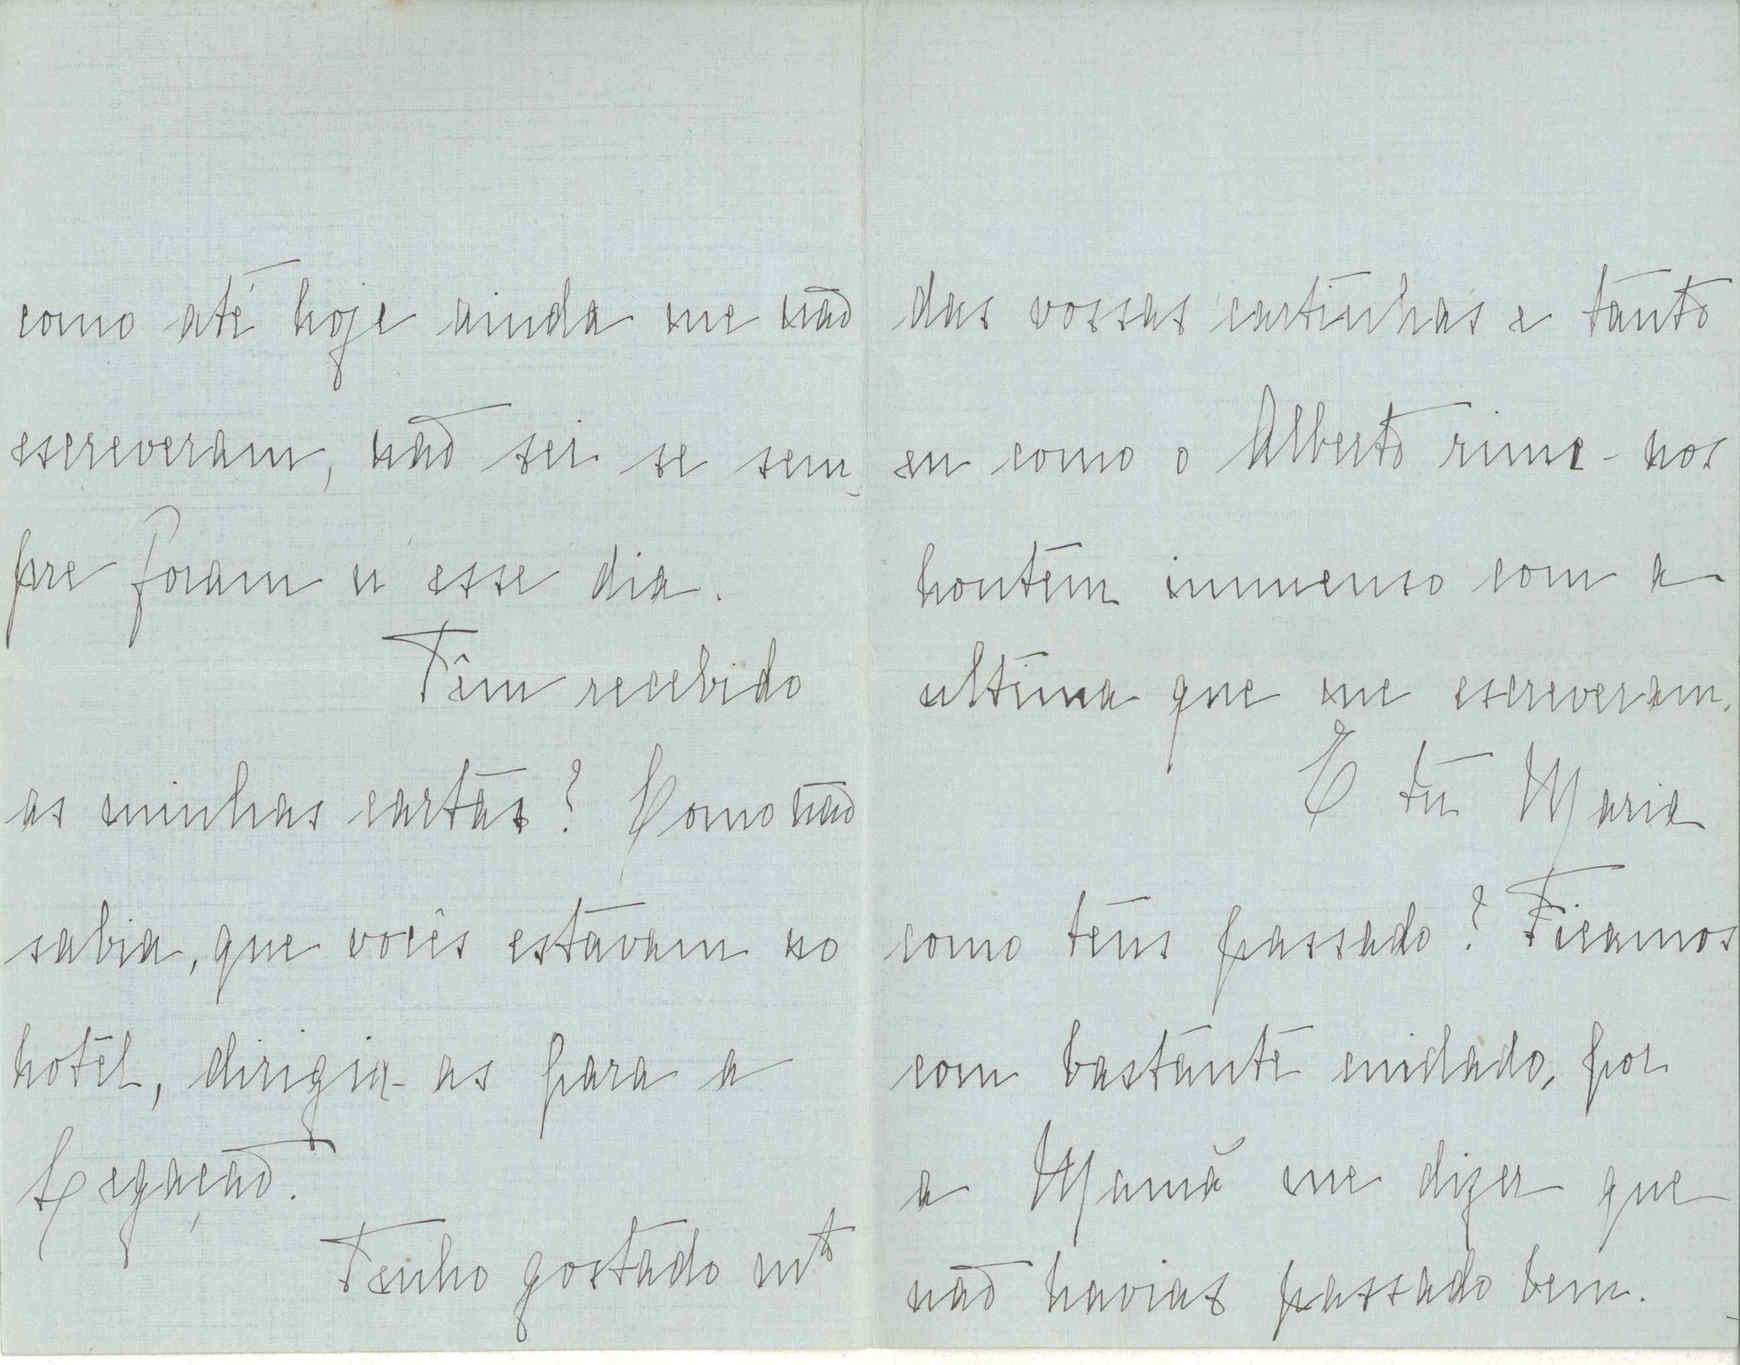 como até hoje ainda me não
escreveram, não sei se sem-
pre foram n'esse dia.
Têm recebido
as minhas cartas? Como não
sabia, que vocês estavam no
hotel, dirigia-as para a
Legação.
Tenho gostado mto
das vossas cartinhas e tanto
eu como o Alberto rime-nos
hontem immenso com a
ultima que me escreveram.
E tu Maria
como tens passado? Ficamos
com bastante cuidado, por
a Mamã me dizer que
não havias passado bem.